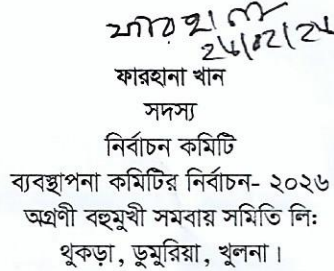 ফারহানা
২৬/০২/২৬
ফারহানা খান
সদস্য
নির্বাচন কমিটি
ব্যবস্থাপনা কমিটির নির্বাচন- ২০২৬
অগ্রণী বহুমুখী সমবায় সমিতি লি:
থুকড়া, ডুমুরিয়া, খুলনা।